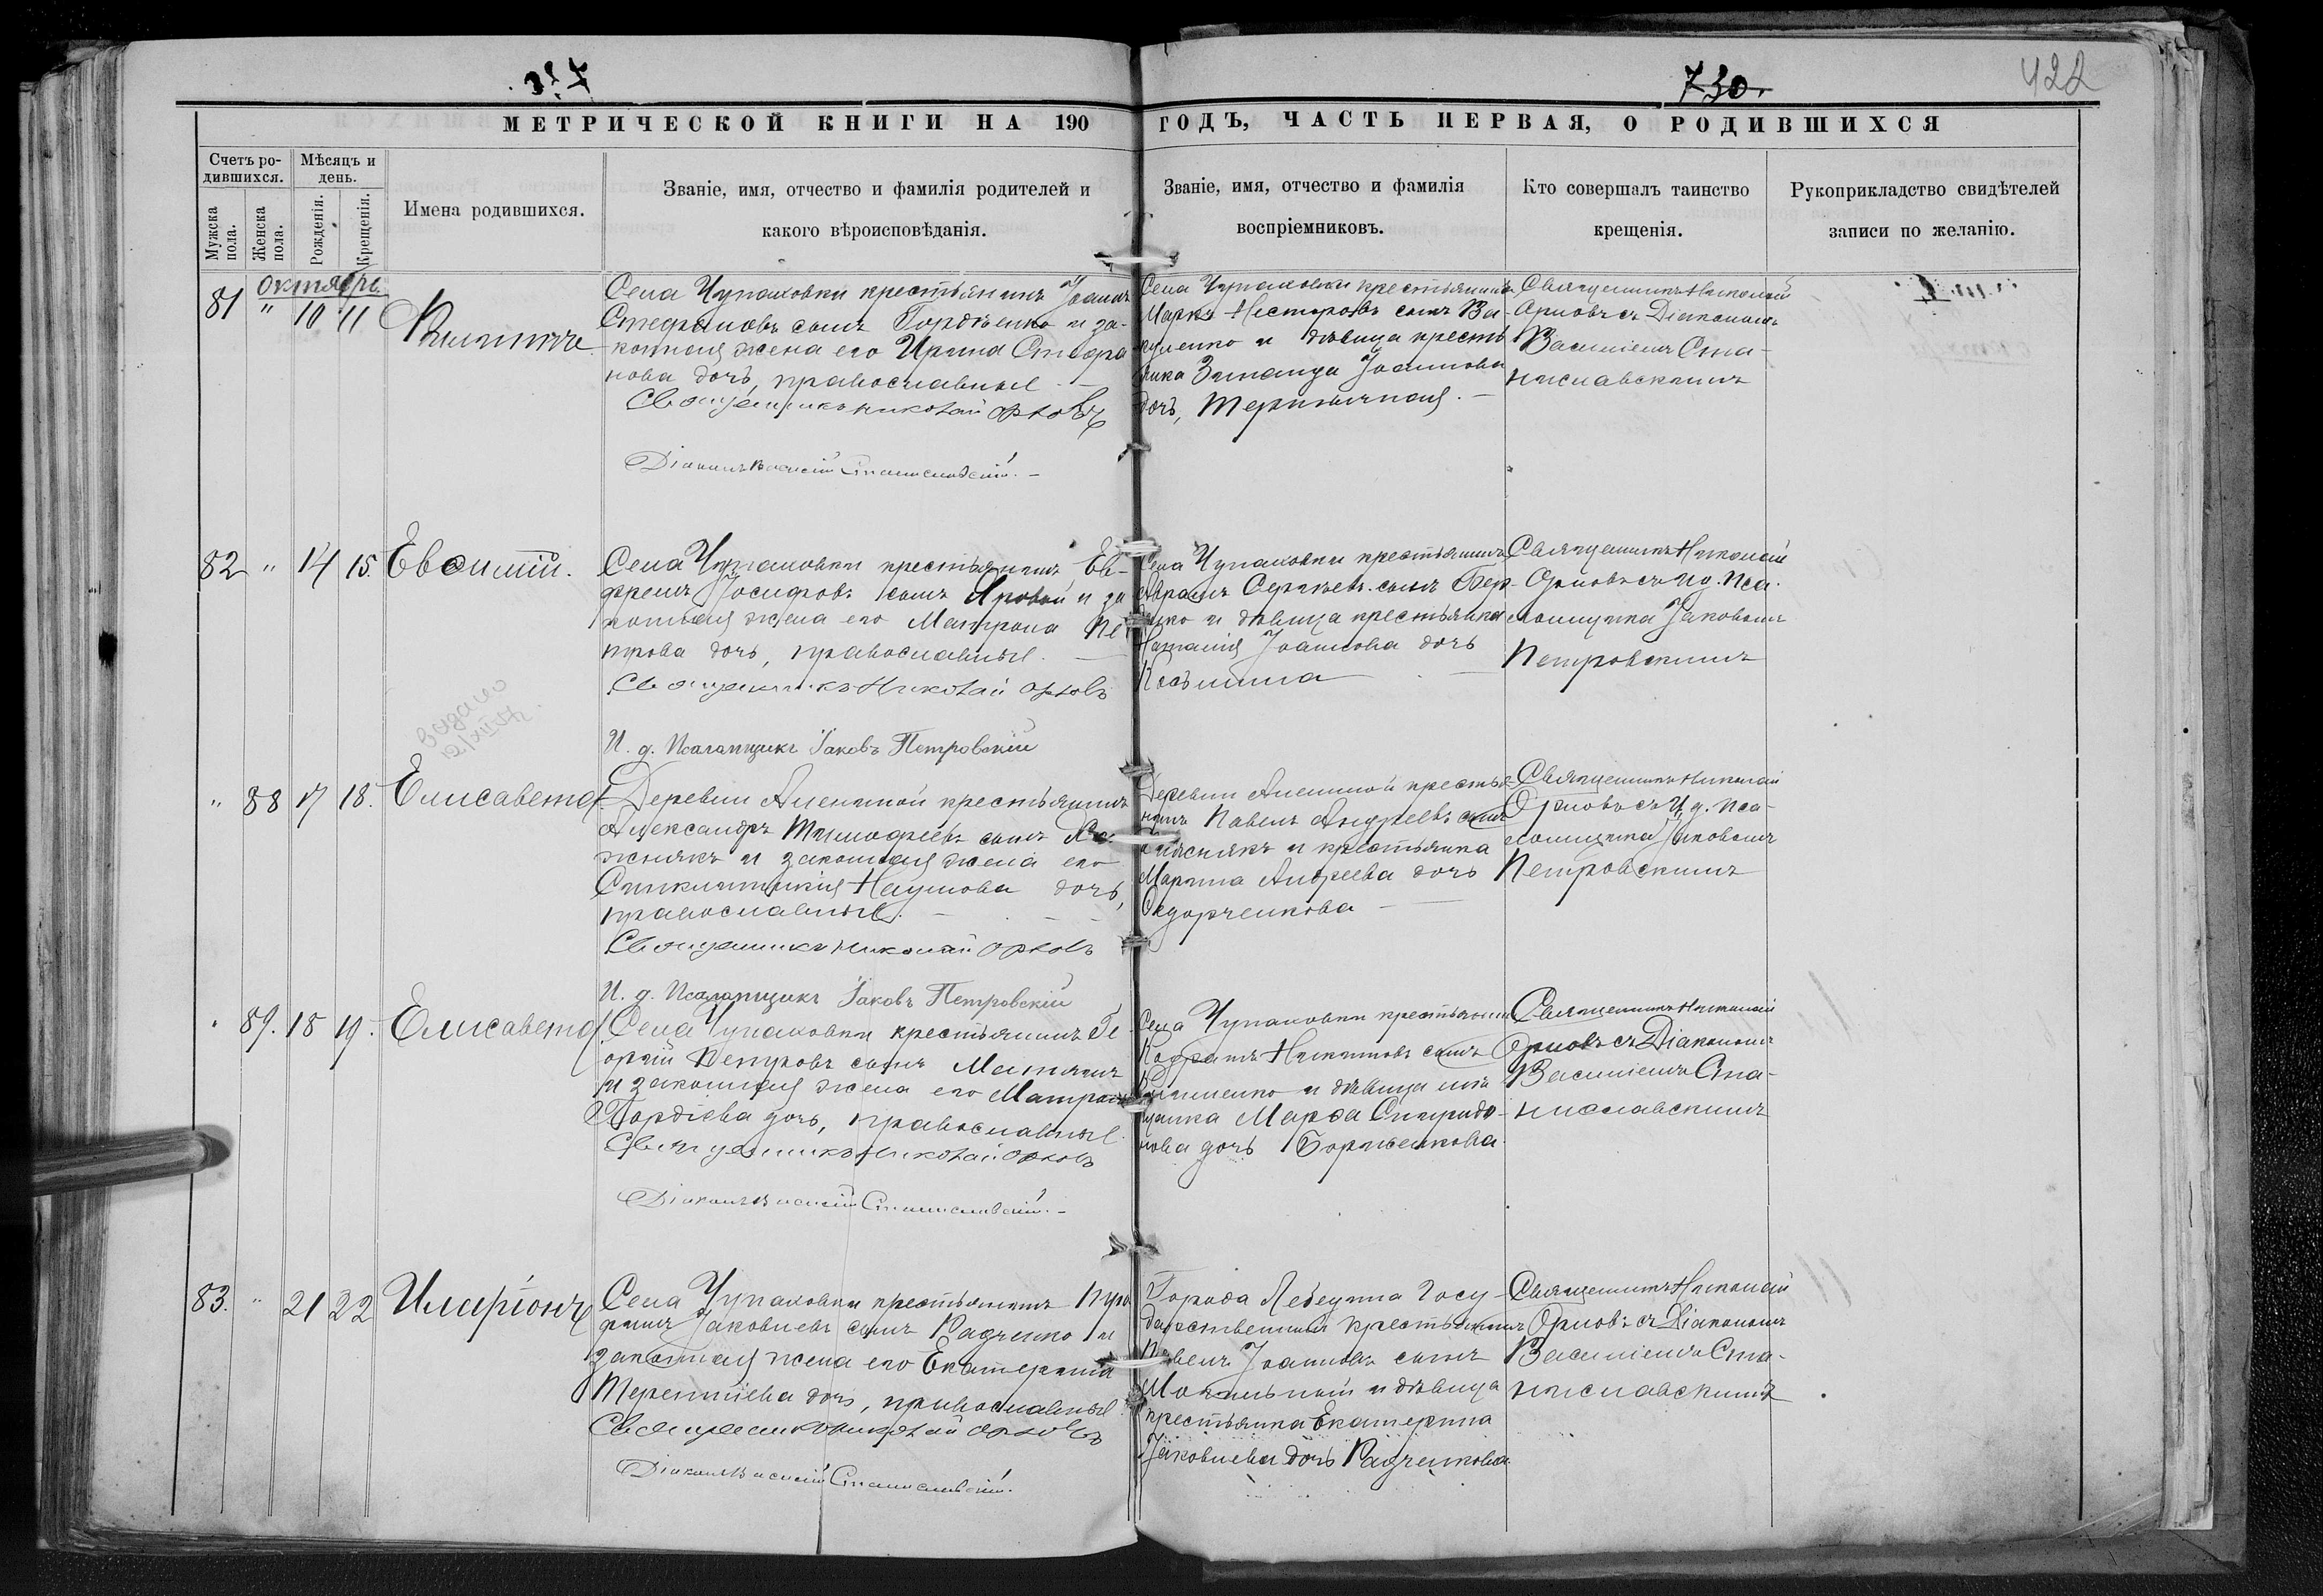 730.
422
МЕТРИЧЕСКОЙ КНИГИ НА 190 ГОДЪ, ЧАСТЬ ПЕРВАЯ, О РОДИВШИХСЯ
Счетъ ро-
дившихся.
Мѣсяцъ и
день.
Мужска
пола.
Женска
пола.
Рожденія.
Крещенія.
Имена родившихся.
Званіе, имя, отчество и фамилія родителей и
какого вѣроисповѣданія.
Званіе, имя, отчество и фамилія
воспріемниковъ.
Кто совершалъ таинство
крещенія.
Рукоприкладство свидѣтелей
записи по желанію.
Октябрь
81 " 10 11
Села Чупаховки крестьянинъ Іоаннъ
Стефановъ сынъ Гордѣенко и за-
конная жена его Ирина Стефа
нова дочь, православные.
Священникъ Николай Орловъ
Діаконъ Василій Станиславскій.
Села Чупаховки крестьянинъ
Маркъ Несторовъ сынъ Ва-
куленко и дѣвица кресть
янка Зинаида Іоаннова
дочь, Терничная.
Священникъ Николай
Орловъ съ Діакономъ
Василіемъ Ста-
ниславскимъ
82 " 14 15. Евфимій.
Села Чупаховки крестьянинъ Ев-
фремъ Іосифовъ сынъ Яровой и за
конная жена его Матрона Пе
трова дочь, православные.
Священникъ Николай Орловъ
И. д. Псаломщикъ Іаковъ Петровскій
Села Чупаховки крестьянинъ
Авраамъ Сергѣевъ сынъ Бер-
дко и дѣвица крестьянка
Наталія Іоаннова дочь
Косьмина
Священникъ Николай
Орловъ съ И.д. Пса-
ломщика Іаковомъ
Петровскимъ
Выдано
12/XII
" 88 17 18. Елисавета
Деревни Алениной крестьянинъ
Александръ Тимофеевъ сынъ
жнякъ и законная жена его
Синклитикія Наумова дочь,
православные.
Священникъ Николай Орловъ
И. д. Псаломщикъ Іаковъ Петровскій
Деревни Алениной кресть
нинъ Павелъ Андреевъ сынъ
и крестьянка
Марина Андреева дочь
Сидорченкова
Священникъ Николай
Орловъ съ И.д. Пса-
ломщика Іаковомъ
Петровскимъ
" 89. 18 19. Елисавета
Села Чупаховки крестьянинъ Ге
оргій Петровъ сынъ Матяшъ
и законная жена его Матрона
Гордіева дочь, православные.
Священникъ Николай Орловъ
Діаконъ Василій Станиславскій.
Села Чупаховки крестьянинъ
Кодратъ Никитовъ сынъ
и дѣвица мѣ
щанка Марфа Спиридо-
нова дочь Борженкова.
Священникъ Николай
Орловъ съ Діакономъ
Василіемъ Ста-
ниславскимъ
83. " 21 22 Иларіонъ
Села Чупаховки крестьянинъ Про
фимъ Іаковлевъ сынъ Радченко и
законная жена его Екатерина
Терентіева дочь, православные
Священникъ Николай Орловъ
Діаконъ Василій Станиславскій.
Города Лебедина Госу-
дарственный крестьянинъ
Павелъ Іоанновъ сынъ
Могильный и дѣвица
крестьянка Екатерина
Іаковлева дочь Радченкова
Священникъ Николай
Орловъ съ Діакономъ
Василіемъ Ста-
ниславскимъ